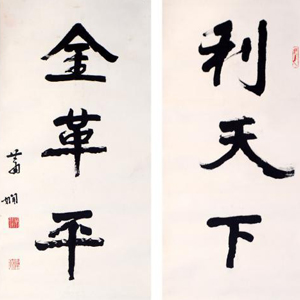 利天下
金革平